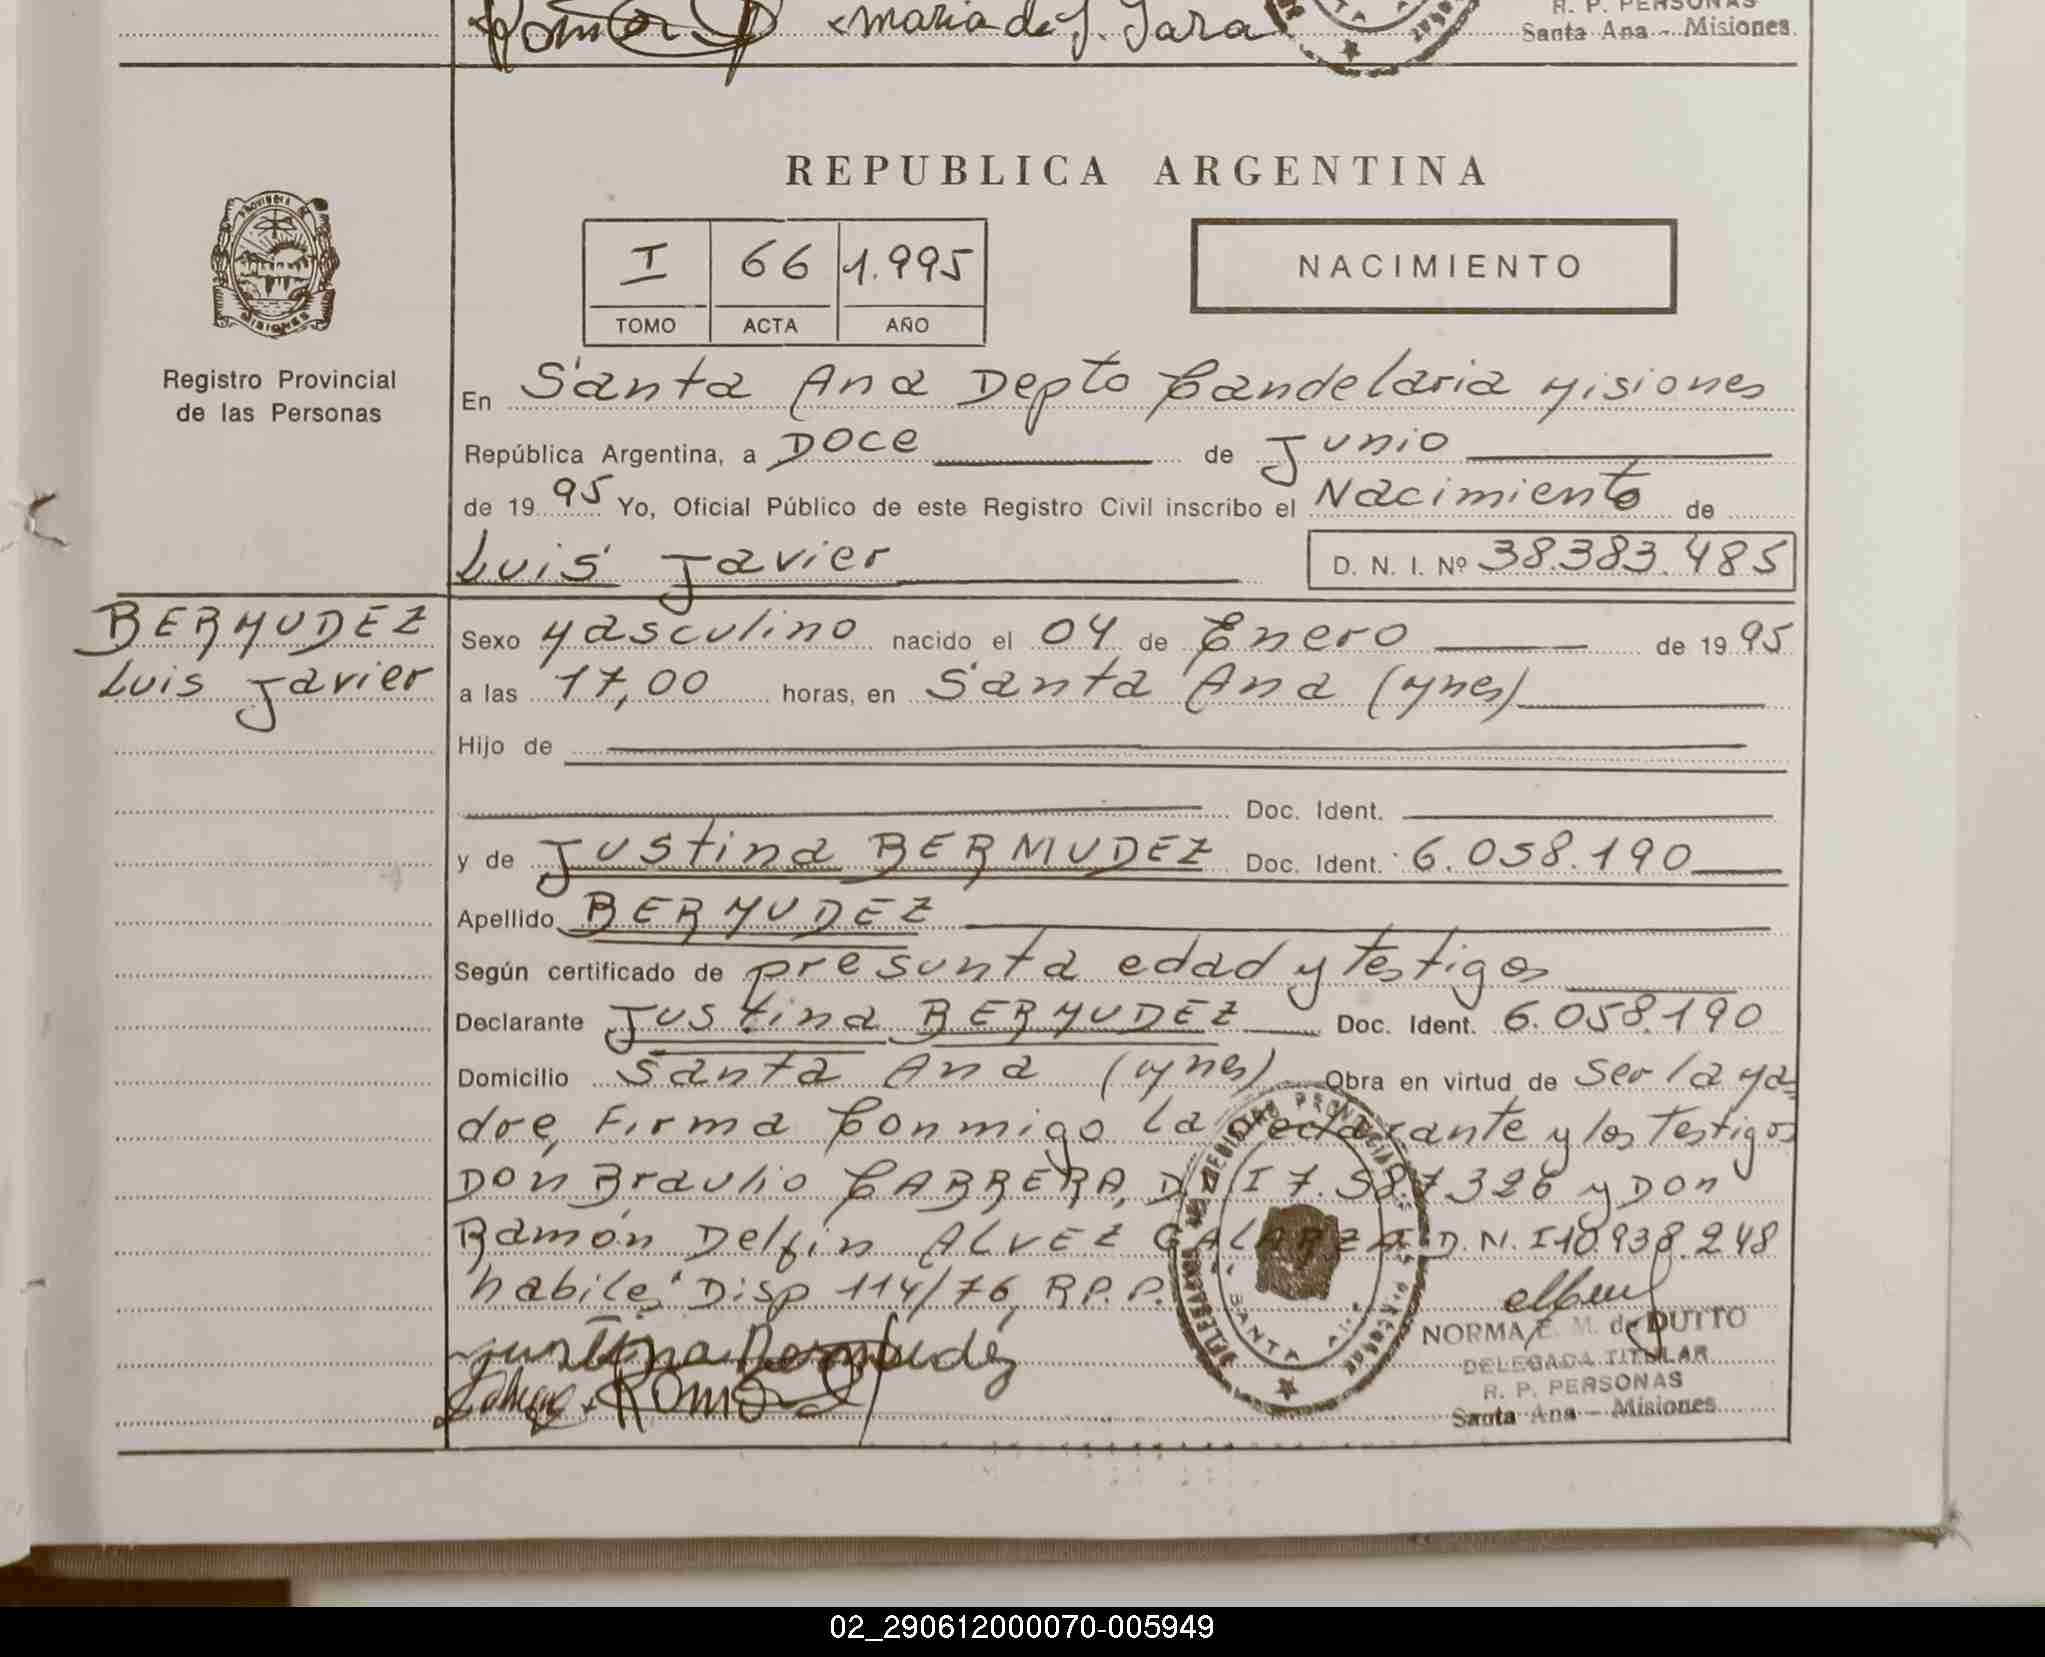 maria de J. Jara
R. P. PERSONAS
Santa Ana - Misiones.
PROVINCIA DE
MISIONES
Registro Provincial
de las Personas
REPUBLICA ARGENTINA
I 66 1.995
TOMO ACTA AÑO
NACIMIENTO
En Santa Ana Depto Candelaria Misiones
República Argentina, a Doce de Junio
de 19 95 Yo, Oficial Público de este Registro Civil inscribo el Nacimiento de
Luis Javier D. N. I. Nº 38.383.485
BERMUDEZ
Luis Javier
Sexo Masculino nacido el 04 de Enero de 19 95
a las 17,00 horas, en Santa Ana (Mnes)
Hijo de
Doc. Ident.
y de Justina BERMUDEZ Doc. Ident. 6.058.190
Apellido BERMUDEZ
Según certificado de presunta edad y testigos
Declarante Justina BERMUDEZ Doc. Ident. 6.058.190
Domicilio Santa Ana (Mnes) Obra en virtud de Ser la Ma
dre, Firma Conmigo la declarante y los Testigos
Don Braulio CABRERA, D.N.I 7.587.326 y Don
Ramón Delfin ALVEZ GALARZA D.N.I 10.938.248
habiles Disp 114/76, R.P.P.
Justina Bermudez
NORMA E. M. de DUTTO
DELEGADA TITULAR
R. P. PERSONAS
Santa Ana - Misiones
SANTA
02_290612000070-005949